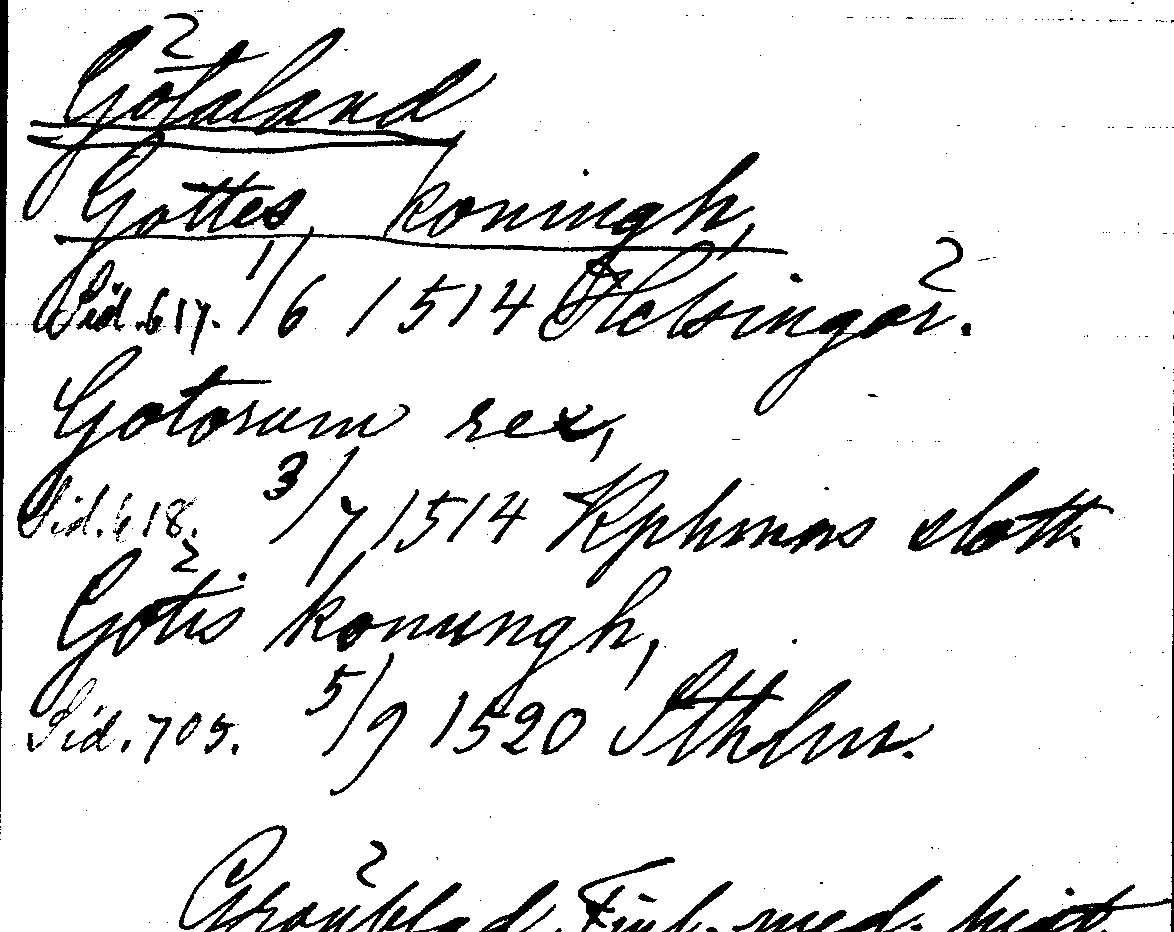 Götaland
Gottes, koningh,
Sid. 617. 1/6 1514 Helsingör.
Gotorum rex,
Sid. 618. 3/7 1514 Kphmns slott.
Götis konungh,
Sid. 705. 5/9 1520 Sthlm.
Grönblad, Finl. med. hist.